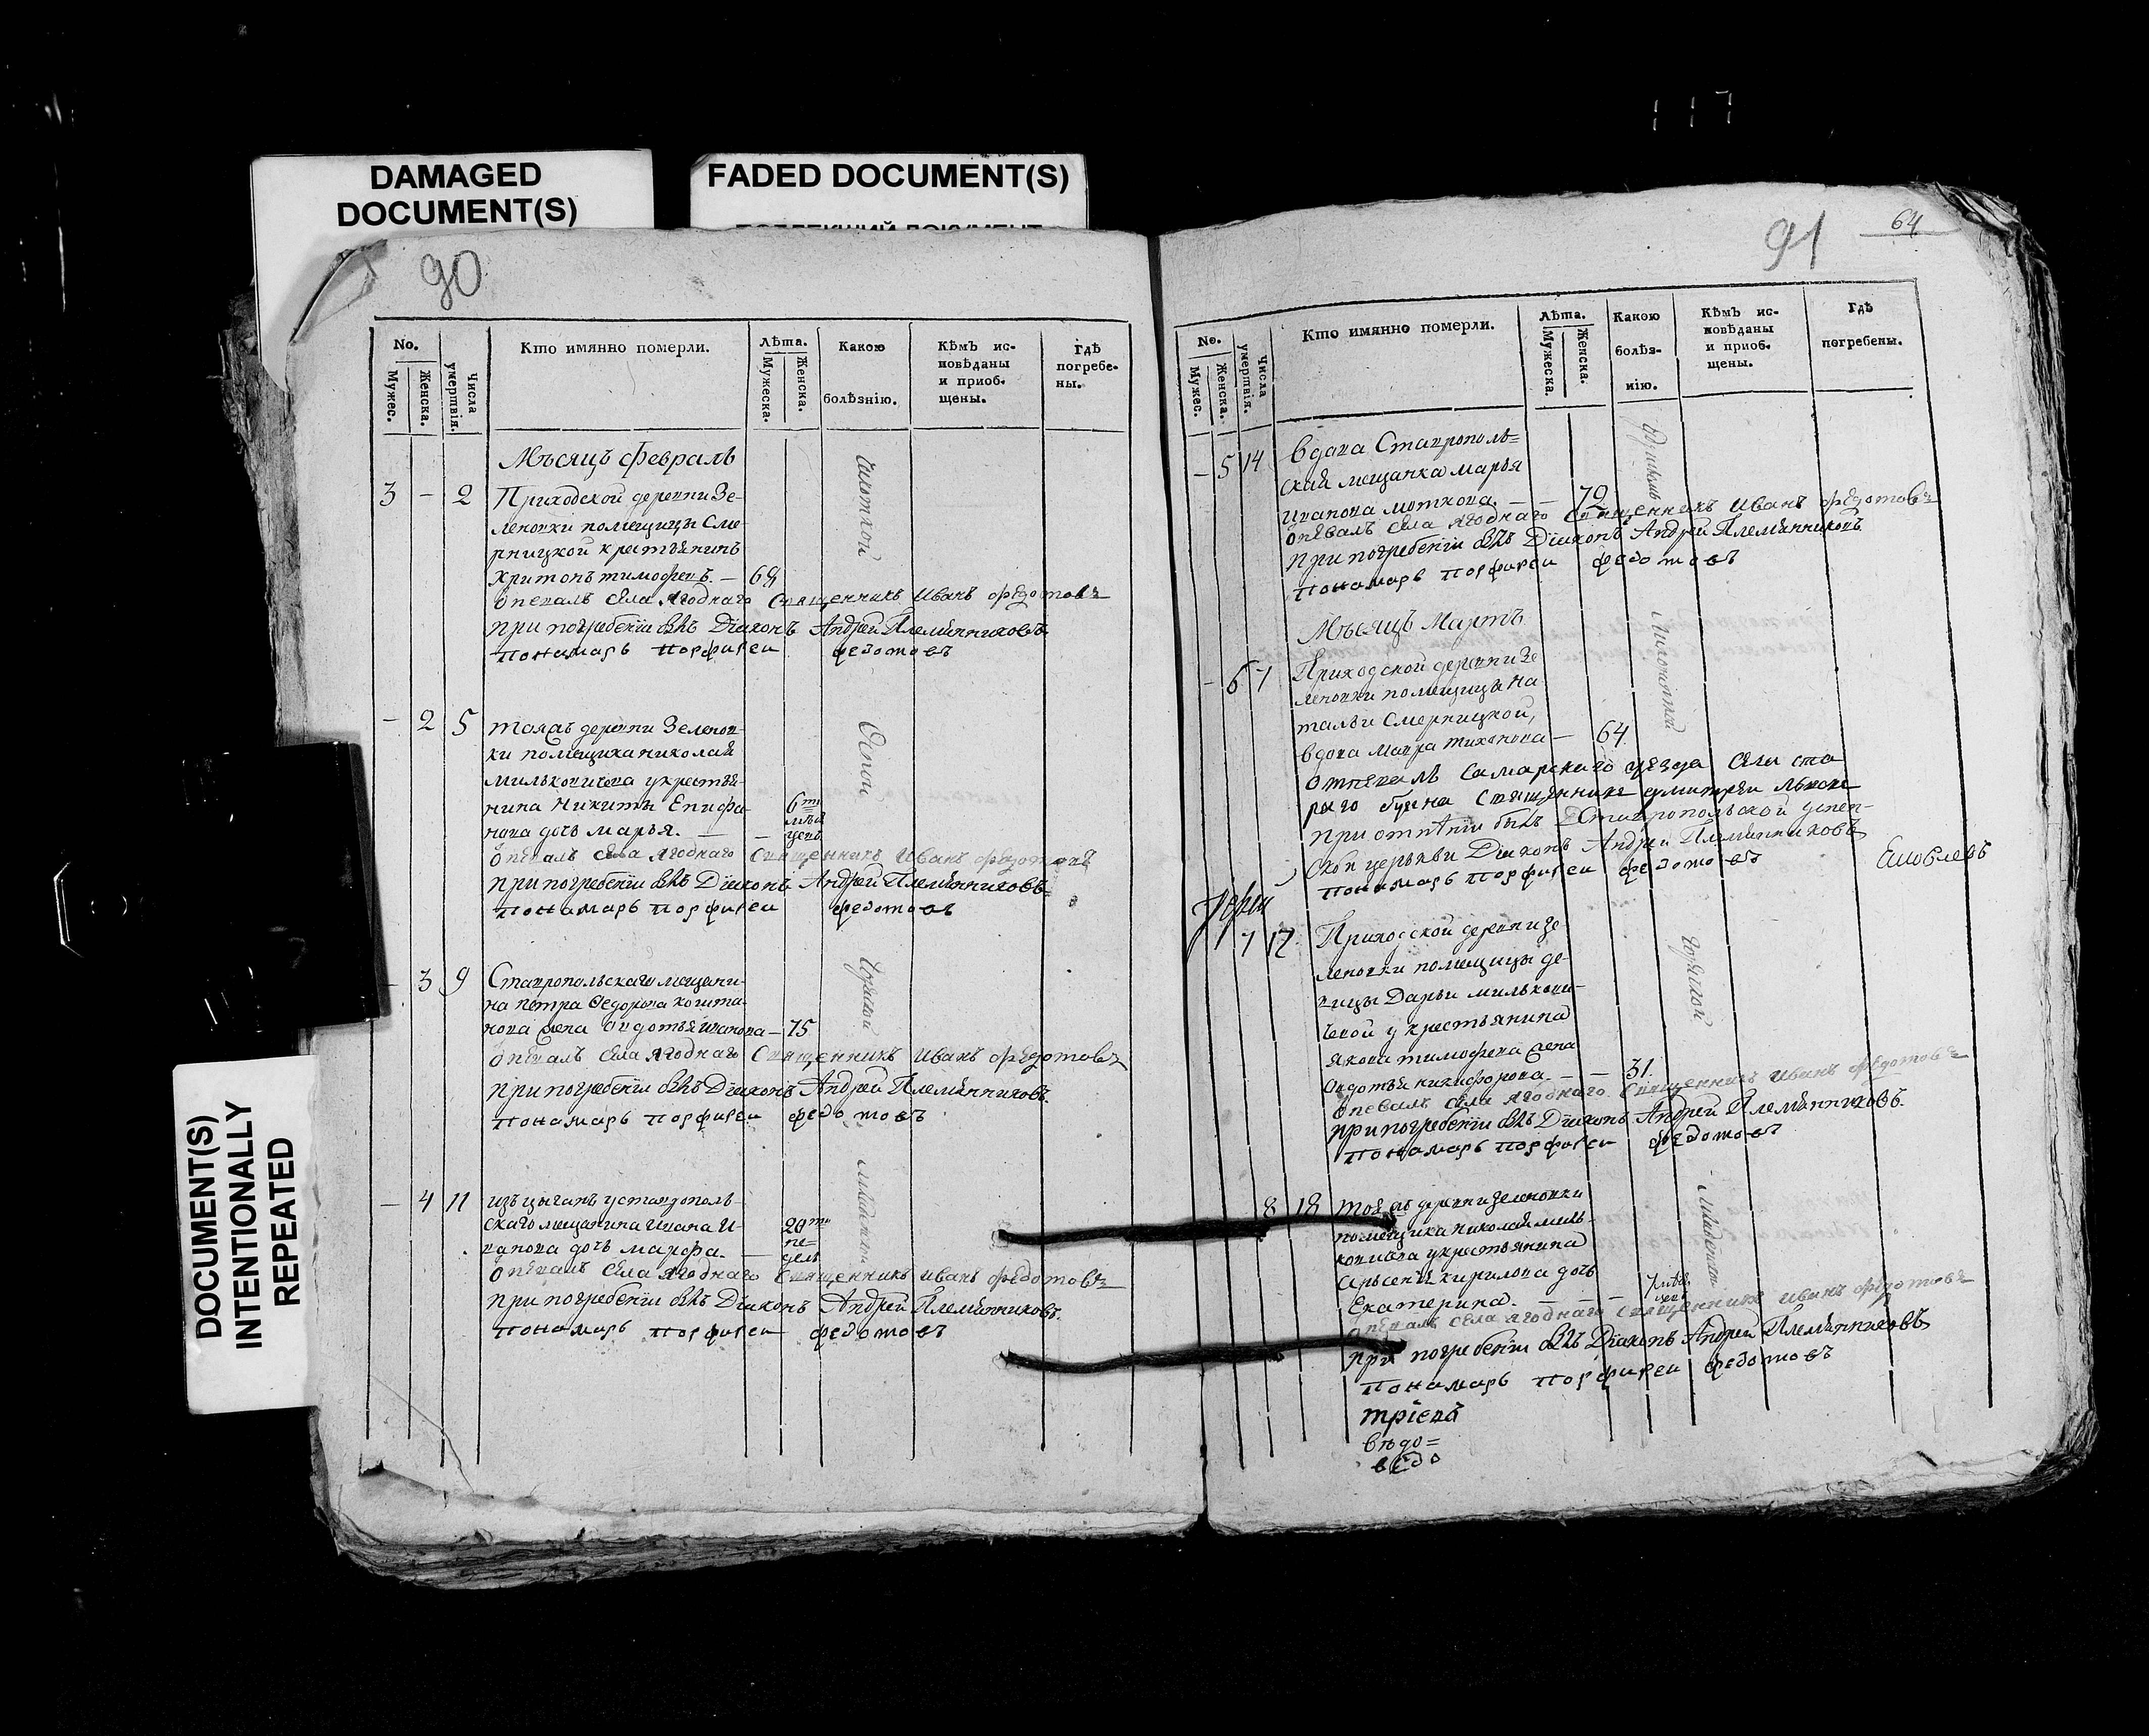 117
DAMAGED
DOCUMENT(S)
FADED DOCUMENT(S)
DOCUMENT(S)
INTENTIONALLY
REPEATED
90
No.
Мужес.
Женска.
Числа
умертвія.
Кто имянно померли.
Лѣта.
Мужеска.
Женска.
Какою
болѣзнію.
Кѣмъ ис-
повѣданы
и приоб-
щены.
Гдѣ
погребе-
ны.
Мѣсяцъ февраль
3 - 2 Приходской деревни Зе-
леновки помещицы Сме-
рницкой крестьянинъ
тимофевъ. —
Опевалъ села Ягоднаго Священникъ Иванъ Федотовъ
при погребеніи былъ Діаконъ Андрей Племянниковъ.
пономарь порфирей федотовъ
- 2 5 тояжъ деревни Зеленов-
ки помещика николая
мильковичева у крестья-
нина Никиты Епифа-
нова дочь марья. — - 6ти
Оспой
Опевалъ села Ягоднаго Священникъ Иванъ Федотовъ
при погребеніи былъ Діаконъ Андрей Племянниковъ
пономарь порфирей федотовъ
- 3 9 Ставропольскаго мещани-
на петра Федорова
жена Авдотья иванова — 75
горячкой
Опевалъ села Ягоднаго Священникъ Иванъ Федотовъ
при погребеніи былъ Діаконъ Андрей Племянниковъ.
пономарь порфирей федотовъ
- 4 11 изъ цыганъ у ставрополь-
скаго мещанина Ивана И-
ванова дочь марфа. — 20ти
не=
дель
Опевалъ села Ягоднаго Священникъ Иванъ Федотовъ
при погребеніи былъ Діаконъ Андрей Племянниковъ.
пономарь порфирей федотовъ
91
64
No.
Мужес.
Женска.
Числа
умертвія.
Кто имянно померли.
Лѣта.
Мужеска.
Женска.
Какою
болѣз-
нію.
Кѣмъ ис-
повѣданы
и приоб-
щены.
Гдѣ
погребены.
- 5 14 вдова Ставрополь=
ская мещанка марья
иванова — — 70
опевалъ села Ягоднаго Священникъ Иванъ Федотовъ
при погребеніи былъ Діаконъ Андрей Племянниковъ
пономарь порфирей федотовъ
Мѣсяцъ Мартъ
- 6 7 Приходской деревни Зе
леновки помещицы На
тальи Смерницкой,
вдова Мавра тихонова — 64.
отпевалъ Самарскаго уезда села ста
раго Священникъ
при отпѣтіи былъ Ставропольской успен-
ской церькви Діаконъ Андрей Племянниковъ
пономарь порфирей федотовъ
7 12 Приходской деревни Зе
леновки помещицы де-
вицы Дарьи милькови-
чевой у крестьянина
якова тимофеева жена
Авдотья никифорова. — — 31.
горячкой
опевалъ села Ягоднаго Священникъ Иванъ Федотовъ
при погребеніи былъ Діаконъ Андрей Племянниковъ.
пономарь порфирей федотовъ
8 18 тояжъ деревни Зеленовки
помещика николая миль-
ковичева у крестьянина
Арьсенья кирилова дочь
Екатерина. —
опевалъ села Ягоднаго Священникъ Иванъ Федотовъ
при погребеніи былъ Діаконъ Андрей Племянниковъ
пономарь порфирей федотовъ